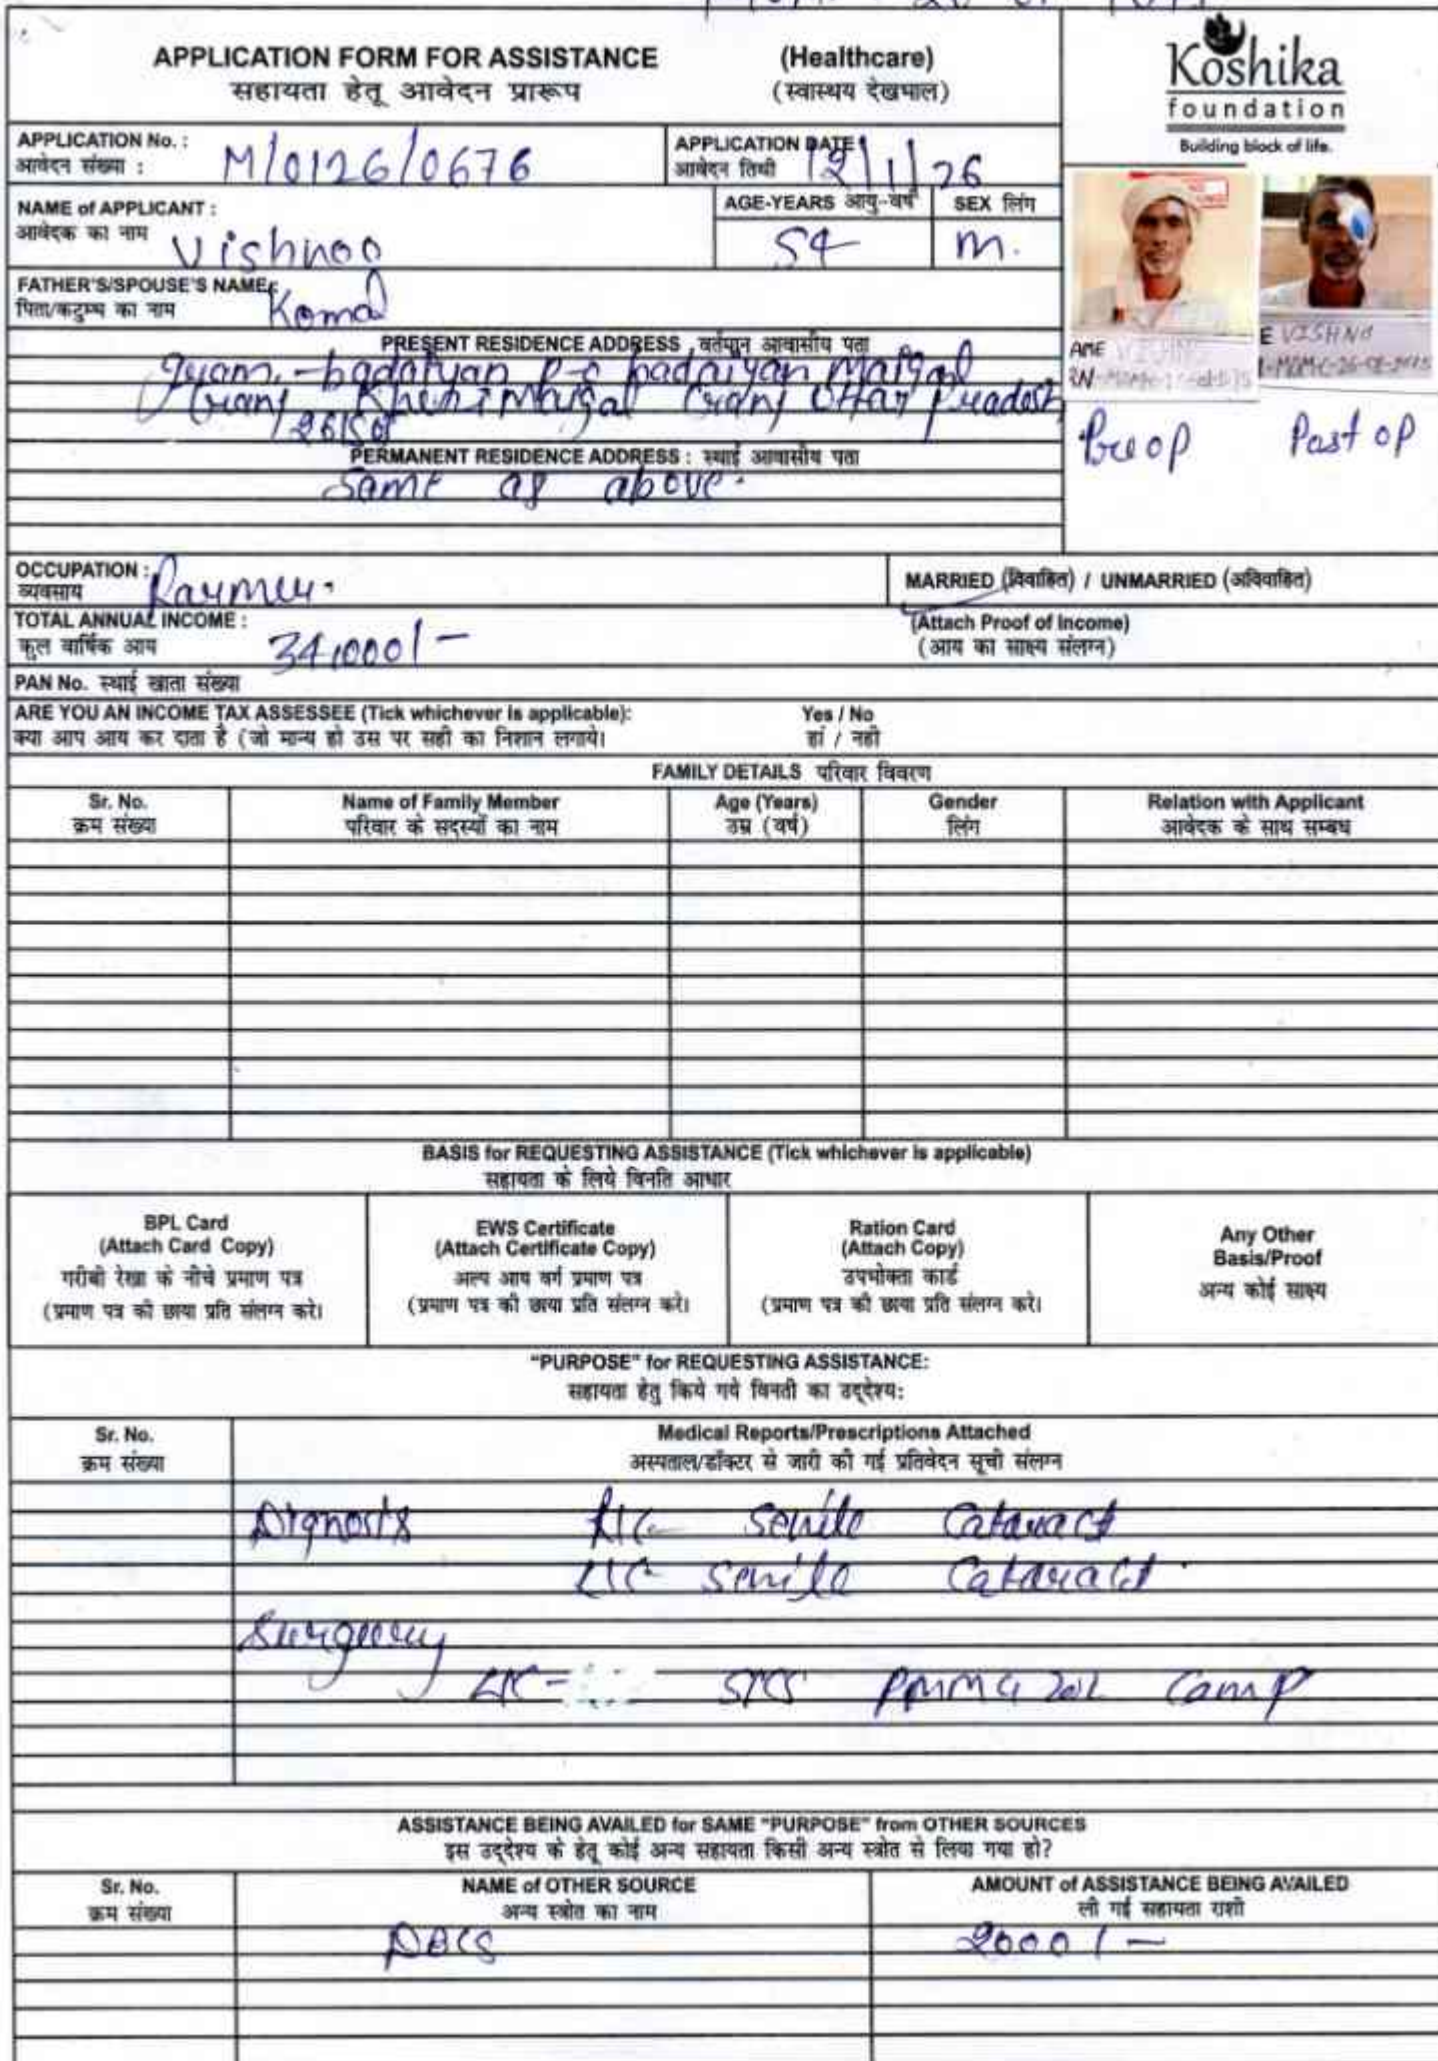 APPLICATION FORM FOR ASSISTANCE (Healthcare)
सहायता हेतू आवेदन प्रारूप (स्वास्थय देखभाल)
Koshika
foundation
Building block of life.
APPLICATION No. : M/0126/0676 APPLICATION DATE 12/1/26
आवेदन संख्या : आवेदन तिथी
NAME of APPLICANT : Vishnoo AGE-YEARS आयु-वर्ष 54 SEX लिंग M.
आवेदक का नाम
FATHER'S/SPOUSE'S NAME: Komal
पिता/कटुम्ब का नाम
PRESENT RESIDENCE ADDRESS वर्तमान आवासीय पता
Uttar Pradesh
PERMANENT RESIDENCE ADDRESS : स्थाई आवासीय पता
Same as above.
Pre op Post op
OCCUPATION :
व्यवसाय
MARRIED (विवाहित) / UNMARRIED (अविवाहित)
TOTAL ANNUAL INCOME : 34,000/-
कुल वार्षिक आय
(Attach Proof of Income)
(आय का साक्ष्य संलग्न)
PAN No. स्थाई खाता संख्या
ARE YOU AN INCOME TAX ASSESSEE (Tick whichever is applicable): Yes / No
क्या आप आय कर दाता है (जो मान्य हो उस पर सही का निशान लगाये। हां / नही
FAMILY DETAILS परिवार विवरण
Sr. No. Name of Family Member Age (Years) Gender Relation with Applicant
क्रम संख्या परिवार के सदस्यों का नाम उम्र (वर्ष) लिंग आवेदक के साथ सम्बध
BASIS for REQUESTING ASSISTANCE (Tick whichever is applicable)
सहायता के लिये विनति आधार
BPL Card
(Attach Card Copy)
गरीबी रेखा के नीचे प्रमाण पत्र
(प्रमाण पत्र की छाया प्रति संलग्न करे।
EWS Certificate
(Attach Certificate Copy)
अल्प आय वर्ग प्रमाण पत्र
(प्रमाण पत्र की छाया प्रति संलग्न करे।
Ration Card
(Attach Copy)
उपभोक्ता कार्ड
(प्रमाण पत्र की छाया प्रति संलग्न करे।
Any Other
Basis/Proof
अन्य कोई साक्ष्य
"PURPOSE" for REQUESTING ASSISTANCE:
सहायता हेतु किये गये विनती का उद्देश्य:
Sr. No. Medical Reports/Prescriptions Attached
क्रम संख्या अस्पताल/डॉक्टर से जारी की गई प्रतिवेदन सूची संलग्न
Senile Cataract
Senile Cataract.
Surgery
SICS PMMA IOL Camp
ASSISTANCE BEING AVAILED for SAME "PURPOSE" from OTHER SOURCES
इस उद्देश्य के हेतू कोई अन्य सहायता किसी अन्य स्त्रोत से लिया गया हो?
Sr. No. NAME of OTHER SOURCE AMOUNT of ASSISTANCE BEING AVAILED
क्रम संख्या अन्य स्त्रोत का नाम ली गई सहायता राशी
DBCS 2000/-